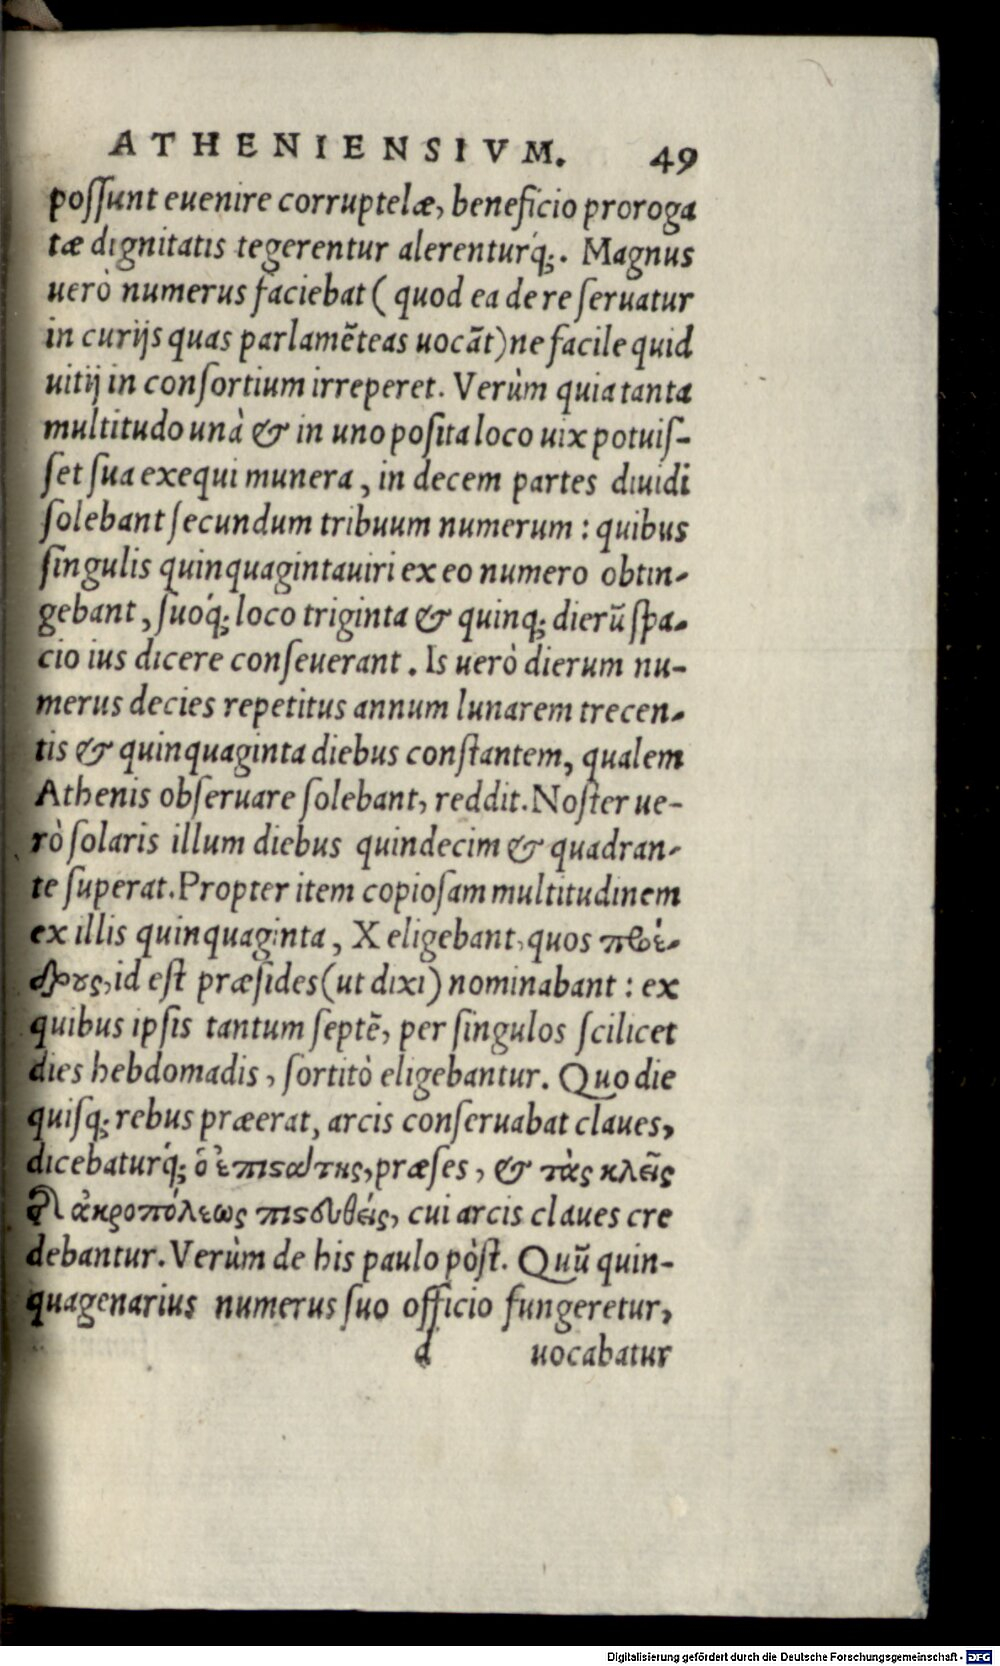 ATHENIENSIVM. 49
poſſunt euenire corruptelæ, beneficio proroga
tæ dignitatis tegerentur alerenturq́;. Magnus
uerò numerus faciebat ( quod ea de re ſeruatur
in curijs quas parlamẽteas uocãt) ne facile quid
uitij in conſortium irreperet. Verùm quia tanta
multitudo unà & in uno poſita loco uix potuiſ-
ſet ſua exequi munera, in decem partes diuidi
ſolebant ſecundum tribuum numerum : quibus
ſingulis quinquagintauiri ex eo numero obtin-
gebant, ſuoq́; loco triginta & quinq; dierũ ſpa-
cio ius dicere conſeuerant. Is uerò dierum nu-
merus decies repetitus annum lunarem trecen-
tis & quinquaginta diebus conſtantem, qualem
Athenis obſeruare ſolebant, reddit. Noſter ue-
rò ſolaris illum diebus quindecim & quadran-
te ſuperat. Propter item copioſam multitudinem
ex illis quinquaginta, X eligebant, quos προέ-
δρους, id eſt præſides (ut dixi) nominabant : ex
quibus ipſis tantum ſeptẽ, per ſingulos ſcilicet
dies hebdomadis, ſortitò eligebantur. Quo die
quiſq; rebus præerat, arcis conſeruabat claues,
dicebaturq́; ὁ ἐπιϛάτης, præſes, & τὰς κλεῖς
τῆ ἀκροπόλεως πιϛευθείς, cui arcis claues cre
debantur. Verùm de his paulo pòſt. Quũ quin-
quagenarius numerus ſuo officio fungeretur,
d uocabatur
Digitalisierung gefördert durch die Deutsche Forschungsgemeinschaft - DFG